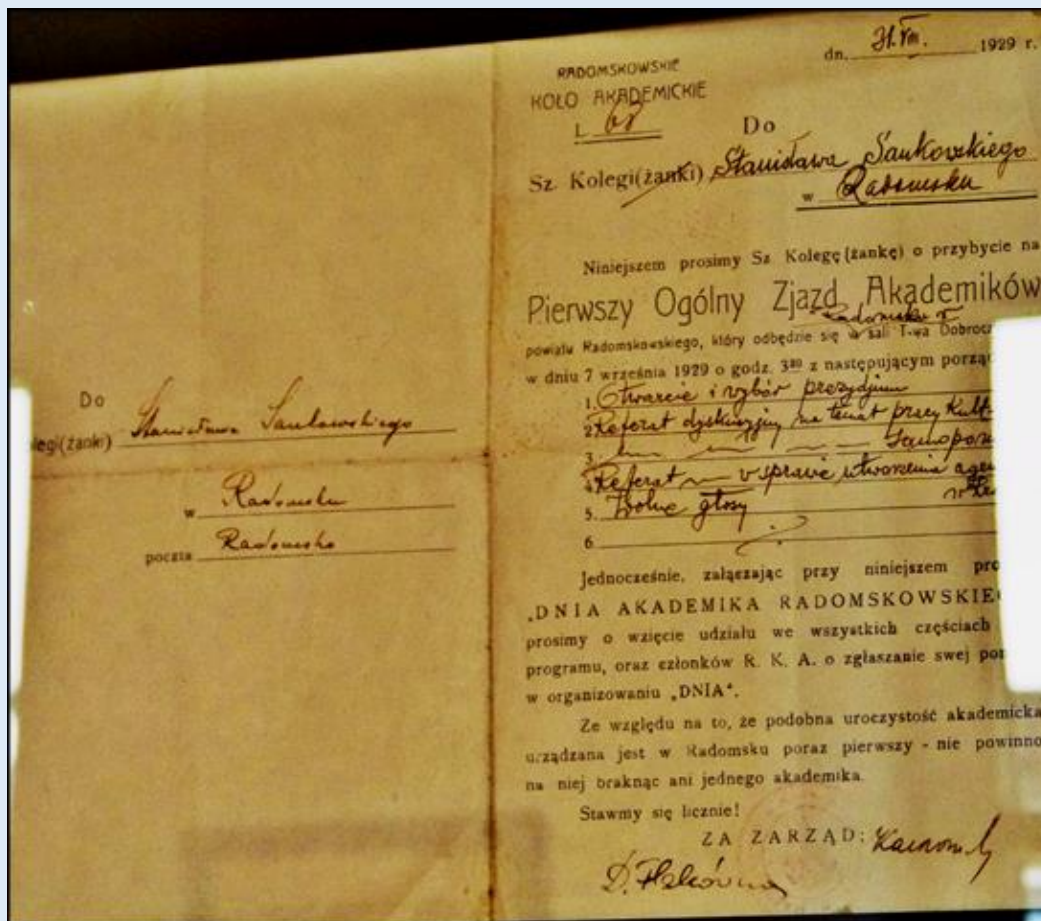 Do
legi(żanki) Stanisława Sankowskiego
w Radomsku
poczta Radomsko
dn. 31.VIII. 1929 r.
RADOMSKOWSKIE
KOŁO AKADEMICKIE
L. 68
Do
Sz. Kolegi(żanki) Stanisława Sankowskiego
w Radomsku
Niniejszem prosimy Sz. Kolegę(żankę) o przybycie na
Pierwszy Ogólny Zjazd Akademików
Radomsku
powiatu Radomskowskiego, który odbędzie się w sali T-wa Dobrocz
w dniu 7 września 1929 o godz. 3³⁰ z następującym porzą
1. Otwarcie i wybór prezydjum
2. Referat dyskusyjny na temat pracy Kult
3. — — — — Samopom
4. Referat — w sprawie utworzenia agen
5. Wolne głosy
6.
Jednocześnie, załączając przy niniejszem pro
„DNIA AKADEMIKA RADOMSKOWSKIE
prosimy o wzięcie udziału we wszystkich częściach
programu, oraz członków R. K. A. o zgłaszanie swej po
w organizowaniu „DNIA“.
Ze względu na to, że podobna uroczystość akademicka
urządzana jest w Radomsku poraz pierwszy - nie powinno
na niej braknąc ani jednego akademika.
Stawmy się licznie!
ZA ZARZĄD: